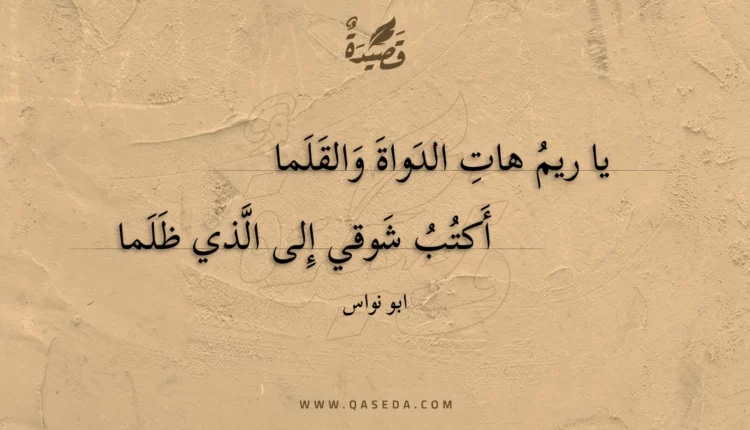 قَصِيدَةٌ
يا ريمُ هاتِ الدَواةَ وَالقَلَما
أَكتُبُ شَوقي إِلى الَّذي ظَلَما
ابو نواس
WWW.QASEDA.COM